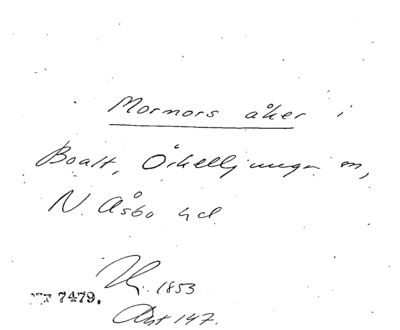 Mormors åker i
Boalt, Örkelljunga sn,
N. Åsbo hd
1853
7479.
Avt 147.